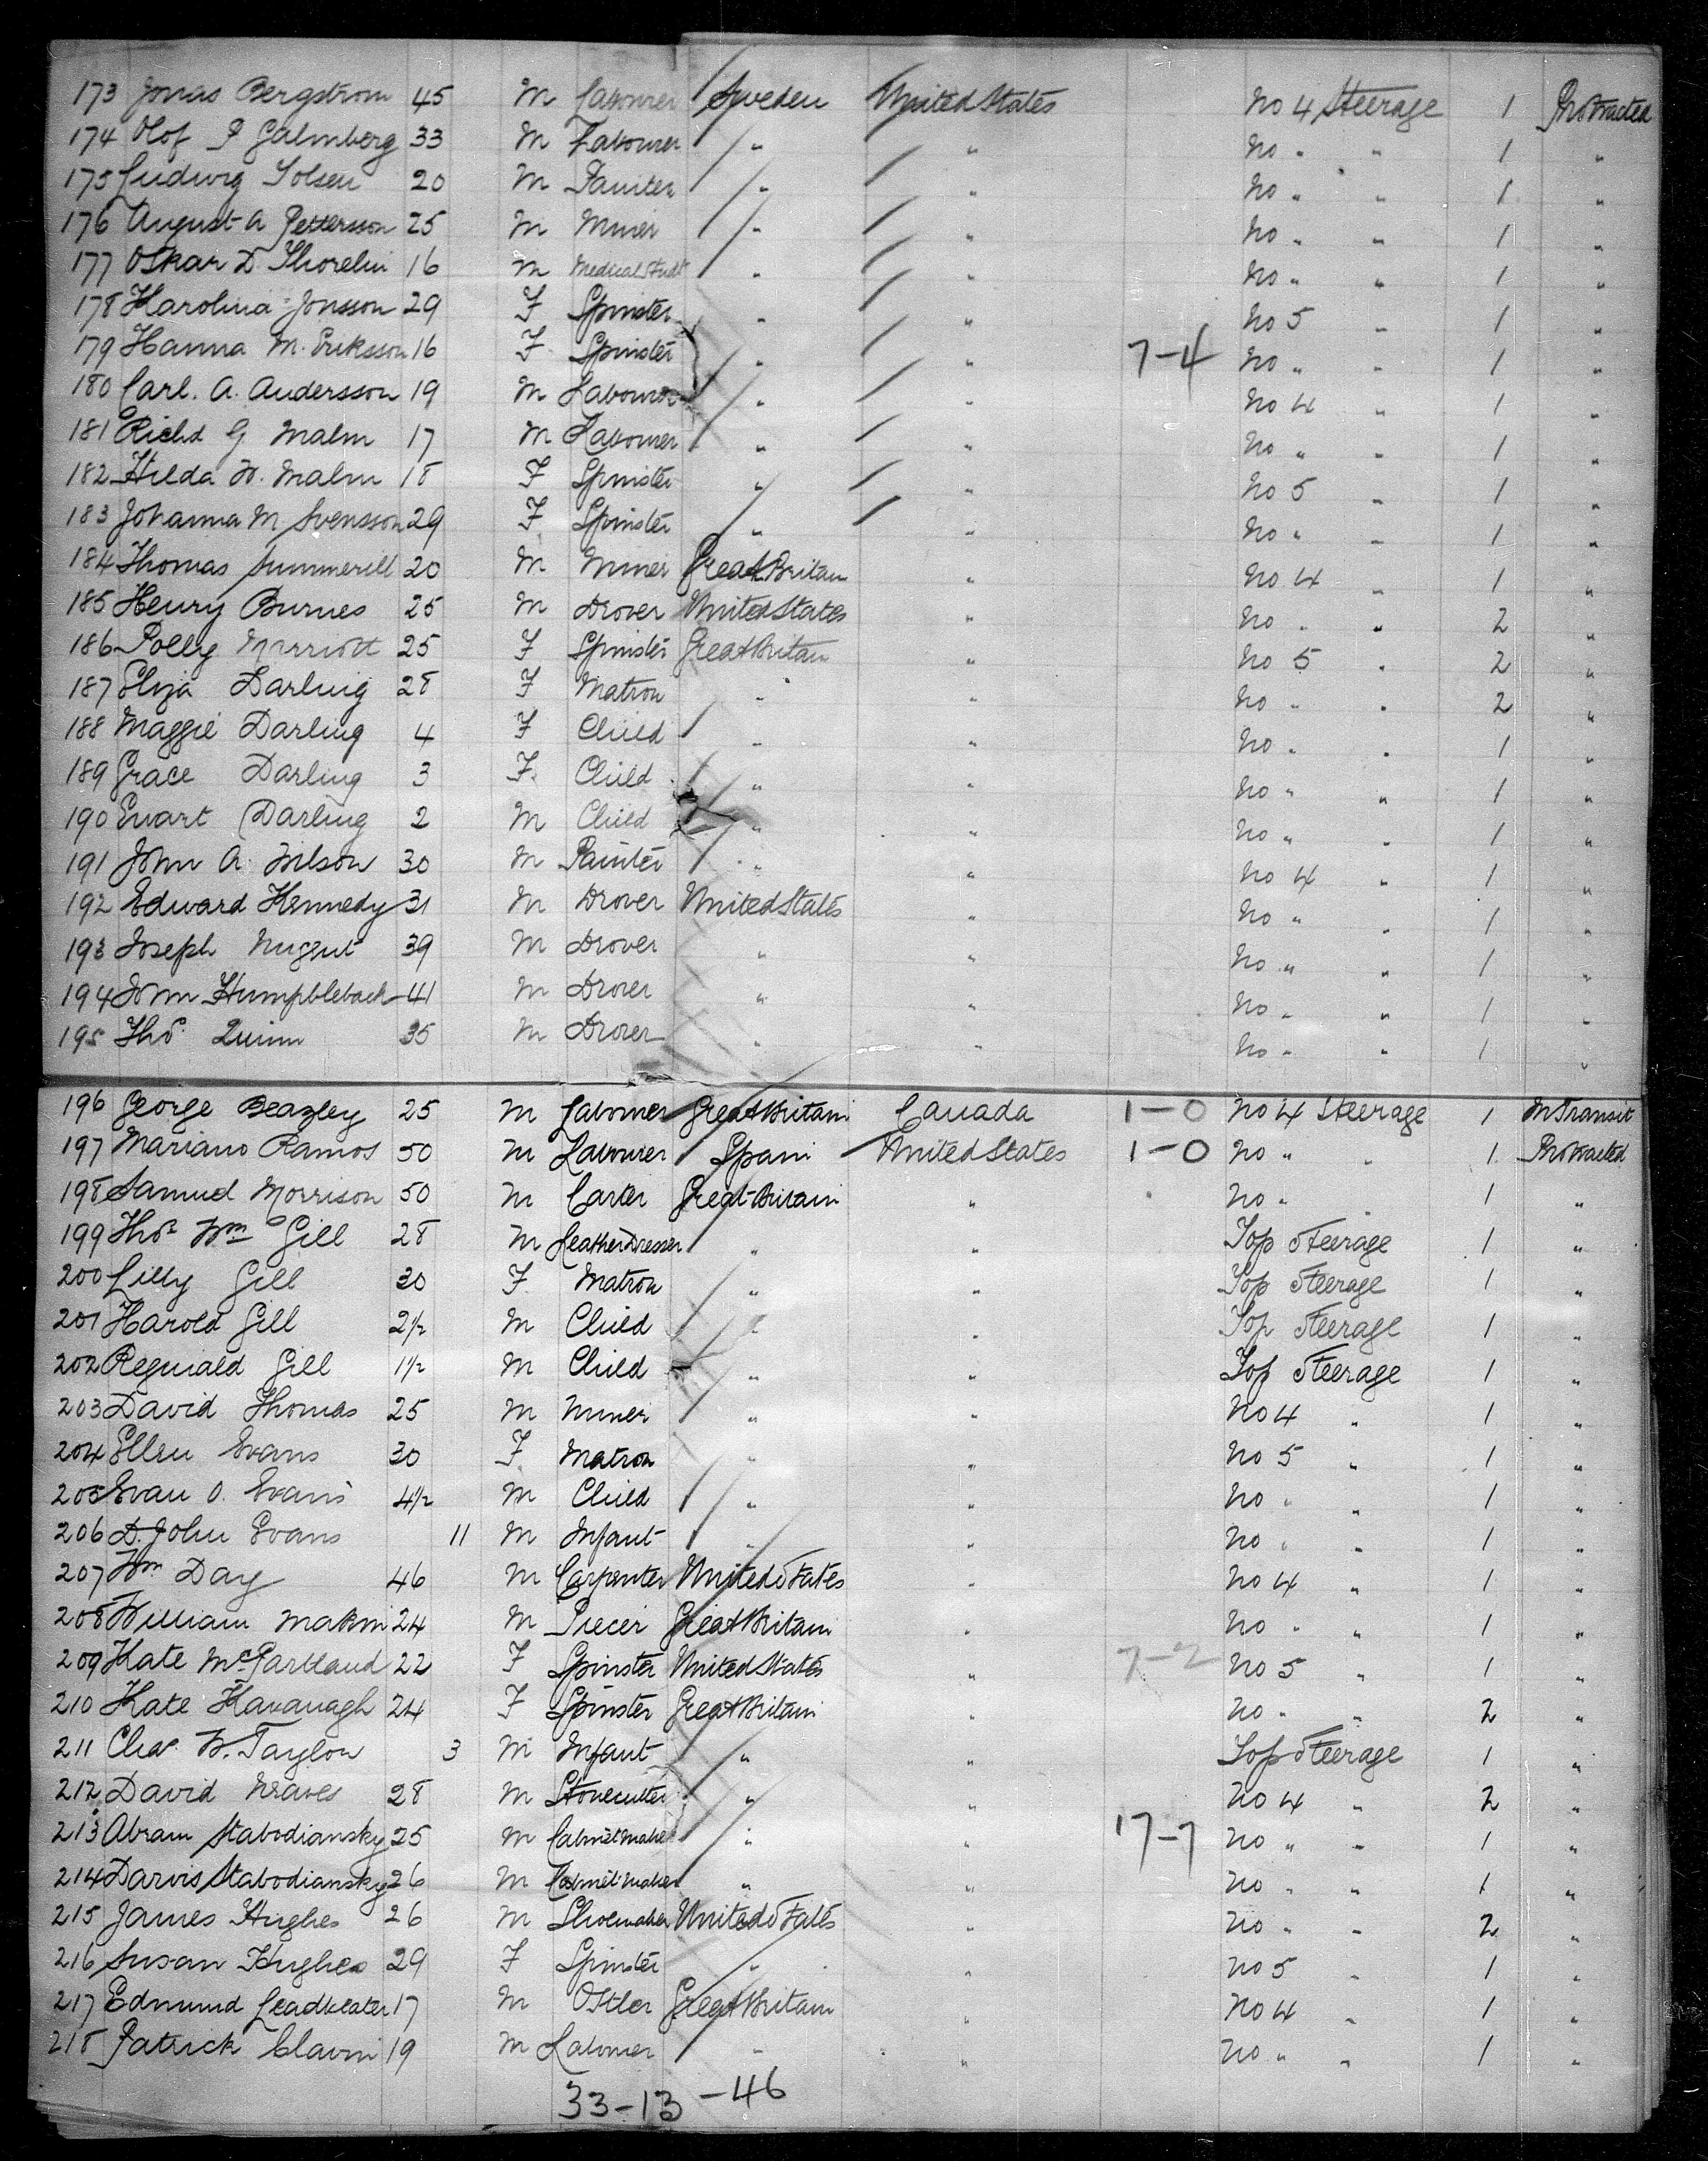 173 Jonas Bergstrom 45 M Labourer Sweden United States No 4 Steerage 1 Protracted
174 Olof P Galmberg 33 M Labourer " " No " " 1 "
175 Ludwig Tolsen 20 M Painter " " No " " 1 "
176 August A Pettersson 25 M Miner " " No " " 1 "
177 Oskar D. Thorelin 16 M Medical Studt " " No " " 1 "
178 Karolina Jonsson 29 F Spinster " " No 5 " 1 "
179 Hanna M. Eriksson 16 F Spinster " " 7-4 No " " 1 "
180 Carl. A. Andersson 19 M Labourer " " No 4 " 1 "
181 Richd G Malm 17 M Labourer " " No " " 1 "
182 Hilda W. Malm 18 F Spinster " " No 5 " 1 "
183 Johanna M Svensson 29 F Spinster " " No " " 1 "
184 Thomas Summerill 20 M Miner Great Britain " No 4 " 1 "
185 Henry Burnes 25 M Drover United States " No " " 2 "
186 Polly Marriott 25 F Spinster Great Britain " No 5 " 2 "
187 Eliza Darling 28 F Matron " " No " " 2 "
188 Maggie Darling 4 F Child " " No " " 1 "
189 Grace Darling 3 F. Child " " No " " 1 "
190 Ewart Darling 2 M Child " " No " " 1 "
191 John A. Wilson 30 M Painter " " No 4 " 1 "
192 Edward Kennedy 31 M Drover United States " No " " 1 "
193 Joseph Nugent 39 M Drover " " No " " 1 "
194 John Humpbleback 41 M Drover " " No " " 1 "
195 Thos. Quinn 35 M Drover " " No " " 1 "
196 George Beazley 25 M Labourer Great Britain Canada 1-0 No 4 Steerage 1 In Transit
197 Mariano Ramos 50 M Labourer Spain United States 1-0 No " " 1 Protracted
198 Samuel Morrison 50 M Carter Great Britain " No " " 1 "
199 Thos Wm Gill 28 M Leather Dresser " " Top Steerage 1 "
200 Lilly Gill 30 F Matron " " Top Steerage 1 "
201 Harold Gill 2½ M Child " " Top Steerage 1 "
202 Reginald Gill 1½ M Child " " Top Steerage 1 "
203 David Thomas 25 M Miner " " No 4 " 1 "
204 Ellen Evans 30 F. Matron " " No 5 " 1 "
205 Evan O. Evans 4½ M Child " " No " " 1 "
206 D. John Evans 11 M Infant " " No " " 1 "
207 Wm Day 46 M Carpenter United States " No 4 " 1 "
208 William Makin 24 M Piecer Great Britain " No " " 1 "
209 Kate McPartland 22 F Spinster United States " 7-2 No 5 " 1 "
210 Kate Kavanagh 24 F Spinster Great Britain " No " " 2 "
211 Chas. W. Taylor 3 M Infant " " Top Steerage 1 "
212 David Graves 28 M Stonecutter " " No 4 " 2 "
213 Abram Slabodiansky 25 M Cabinet Maker " " 17-7 No " " 1 "
214 Darvis Slabodiansky 26 M Cabinet Maker " " No " " 1 "
215 James Hughes 26 M Shoemaker United States " No " " 2 "
216 Susan Hughes 29 F Spinster " " No 5 " 1 "
217 Edmund Leadbeater 17 M Ostler Great Britain " No 4 " 1 "
218 Patrick Clavin 19 M Labourer " " No " " 1 "
33-13-46